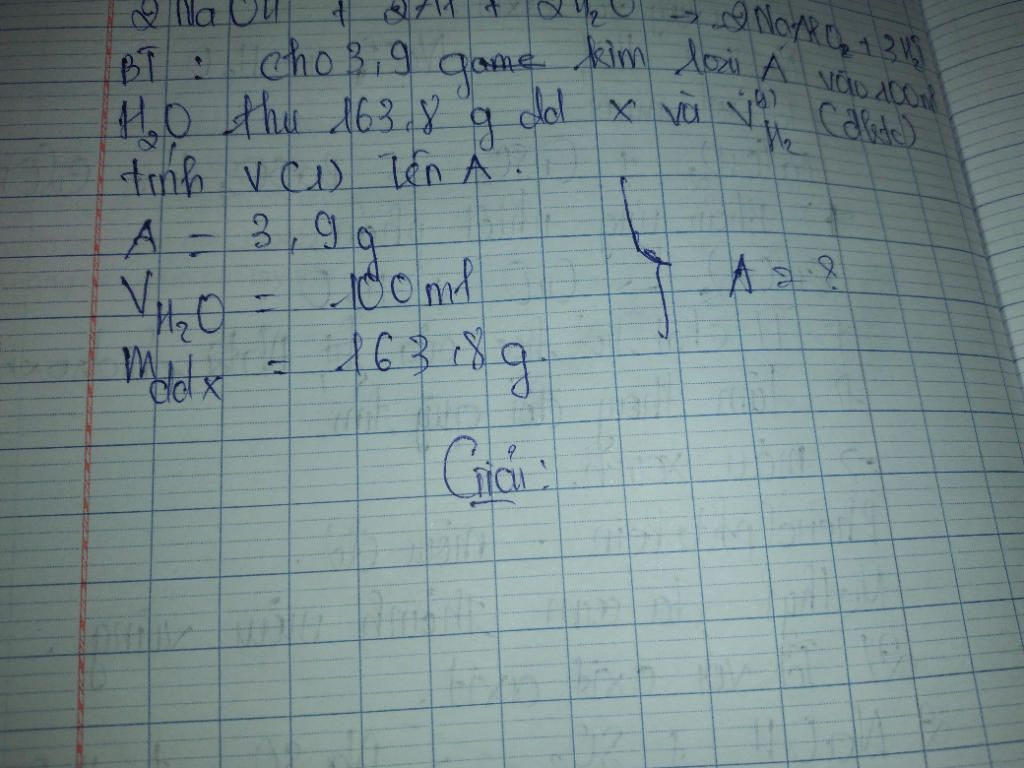 2 NaOH + 2Al + 2H₂O → 2NaAlO₂ + 3H₂
BT : cho 3,9 game kim loại A vào 100ml
H₂O thu 163,8 g dd x và V(l) H₂ (đktc)
tính V(l) Tên A.
A = 3,9g
V H₂O = 100ml
m ddx = 163,8 g.
A = ?
Giải: